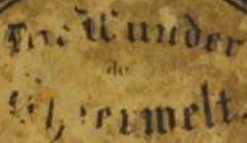 Die Wunder
der
Thierwelt.